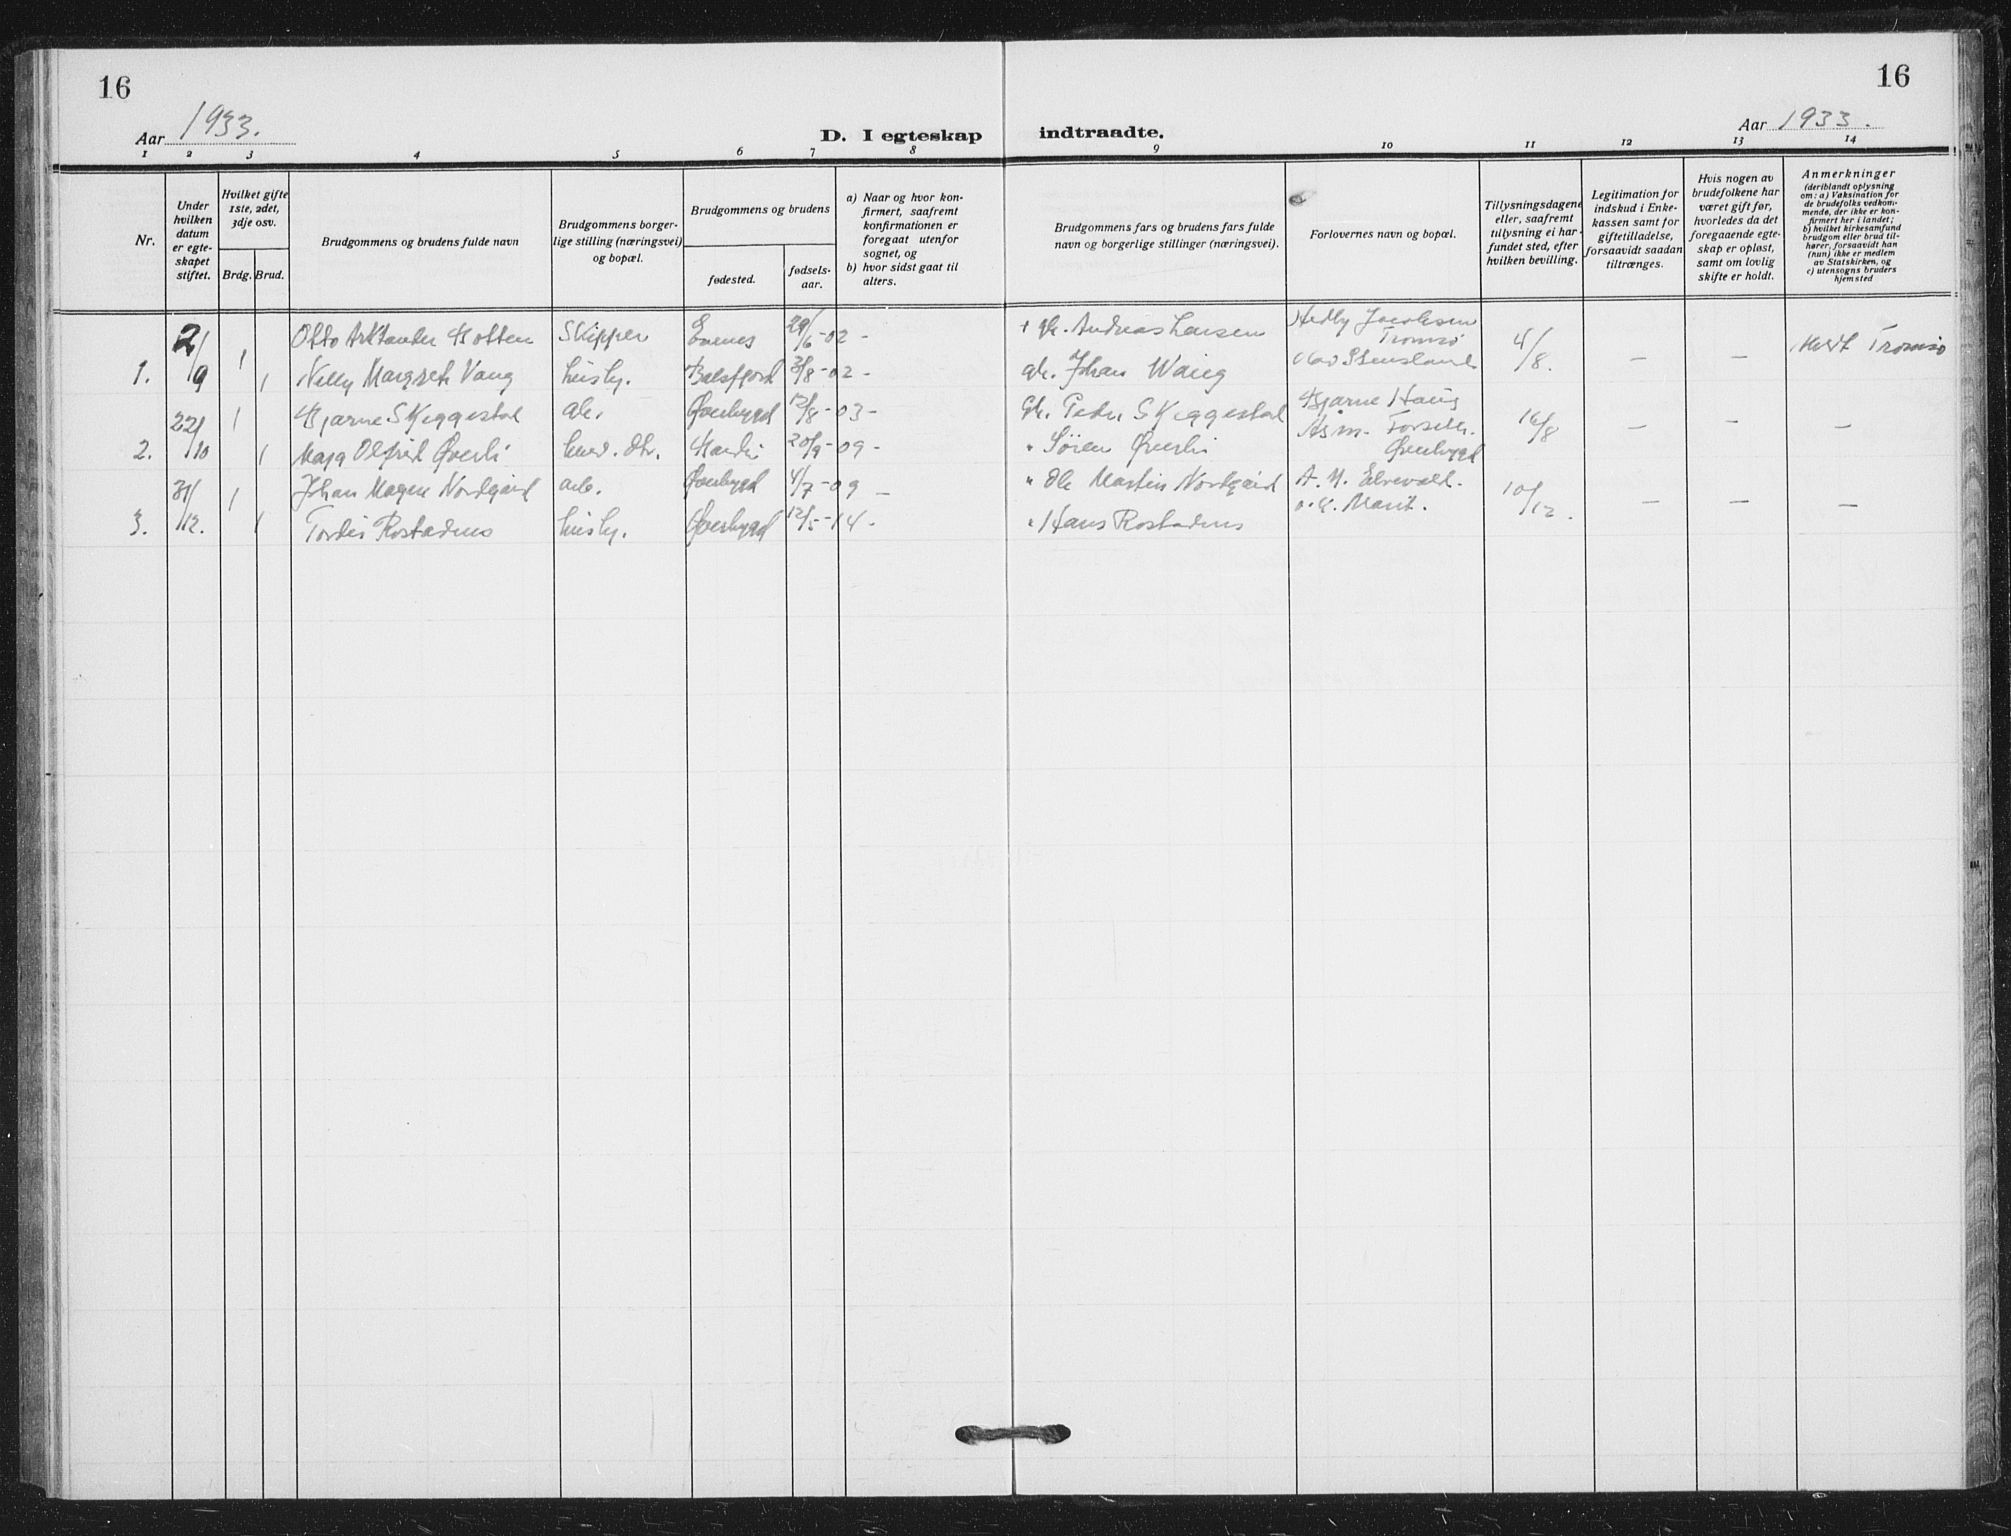 16
16
Aar 1933.
D. I egteskap indtraadte.
Aar 1933.
1 2 3 4 5 6 7 8 9 10 11 12 13 14
Nr.
Under
hvilken
datum
er egte-
skapet
stiftet.
Hvilket gifte
1ste, 2det,
3dje osv.
Brdg. Brud.
Brudgommens og brudens fulde navn
Brudgommens borger-
lige stilling (næringsvei)
og bopæl.
Brudgommens og brudens
fødested.
fødsels-
aar.
a) Naar og hvor kon-
firmert, saafremt
konfirmationen er
foregaat utenfor
sognet, og
b) hvor sidst gaat til
alters.
Brudgommens fars og brudens fars fulde
navn og borgerlige stillinger (næringsvei).
Forlovernes navn og bopæl.
Tillysningsdagene
eller, saafremt
tillysning ei har
fundet sted, efter
hvilken bevilling.
Legitimation for
indskud i Enke-
kassen samt for
giftetilladelse,
forsaavidt saadan
tiltrænges.
Hvis nogen av
brudefolkene har
været gift før,
hvorledes da det
foregaaende egte-
skap er opløst,
samt om lovlig
skifte er holdt.
Anmerkninger
(deriblandt oplysning
om: a) Vaksination for
de brudefolks vedkom-
mende, der ikke er kon-
firmert her i landet;
b) hvilket kirkesamfund
brudgom eller brud til-
hører, forsaavidt han
(hun) ikke er medlem
av Statskirken, og
c) utensogns bruders
hjemsted
2/9 1 Otto Arktander Hotten Skipper Evenes 29/6-02 - + gk. Andreas Larsen Hedly Jacobsen Tromsø 4/8. - - Tromsø
1. 1 Nelly Margrete Vang husby. Balsfjord 3/8-02 - gk. Johan Waug Stensland
22/10 1 Bjarne Skjeggestad gk. Øverbygd 12/8-03 - gk. Peder Skjeggestad Bjarne Haug 16/8 - - -
2. 1 Maja Olfrid Øverli hmd. dtr. 20/9-09 - " Søren Øverli Asm. Forseth. Øverbygd
31/12. 1 Johan Magne Nordgård arb. Øverbygd 4/7-09 - " Ole Martin Nordgård A. M. Elvevold. 10/12. - - -
3. 1 Tordis Rostadmo husby. Øverbygd 12/5-14 - " Hans Rostadmo